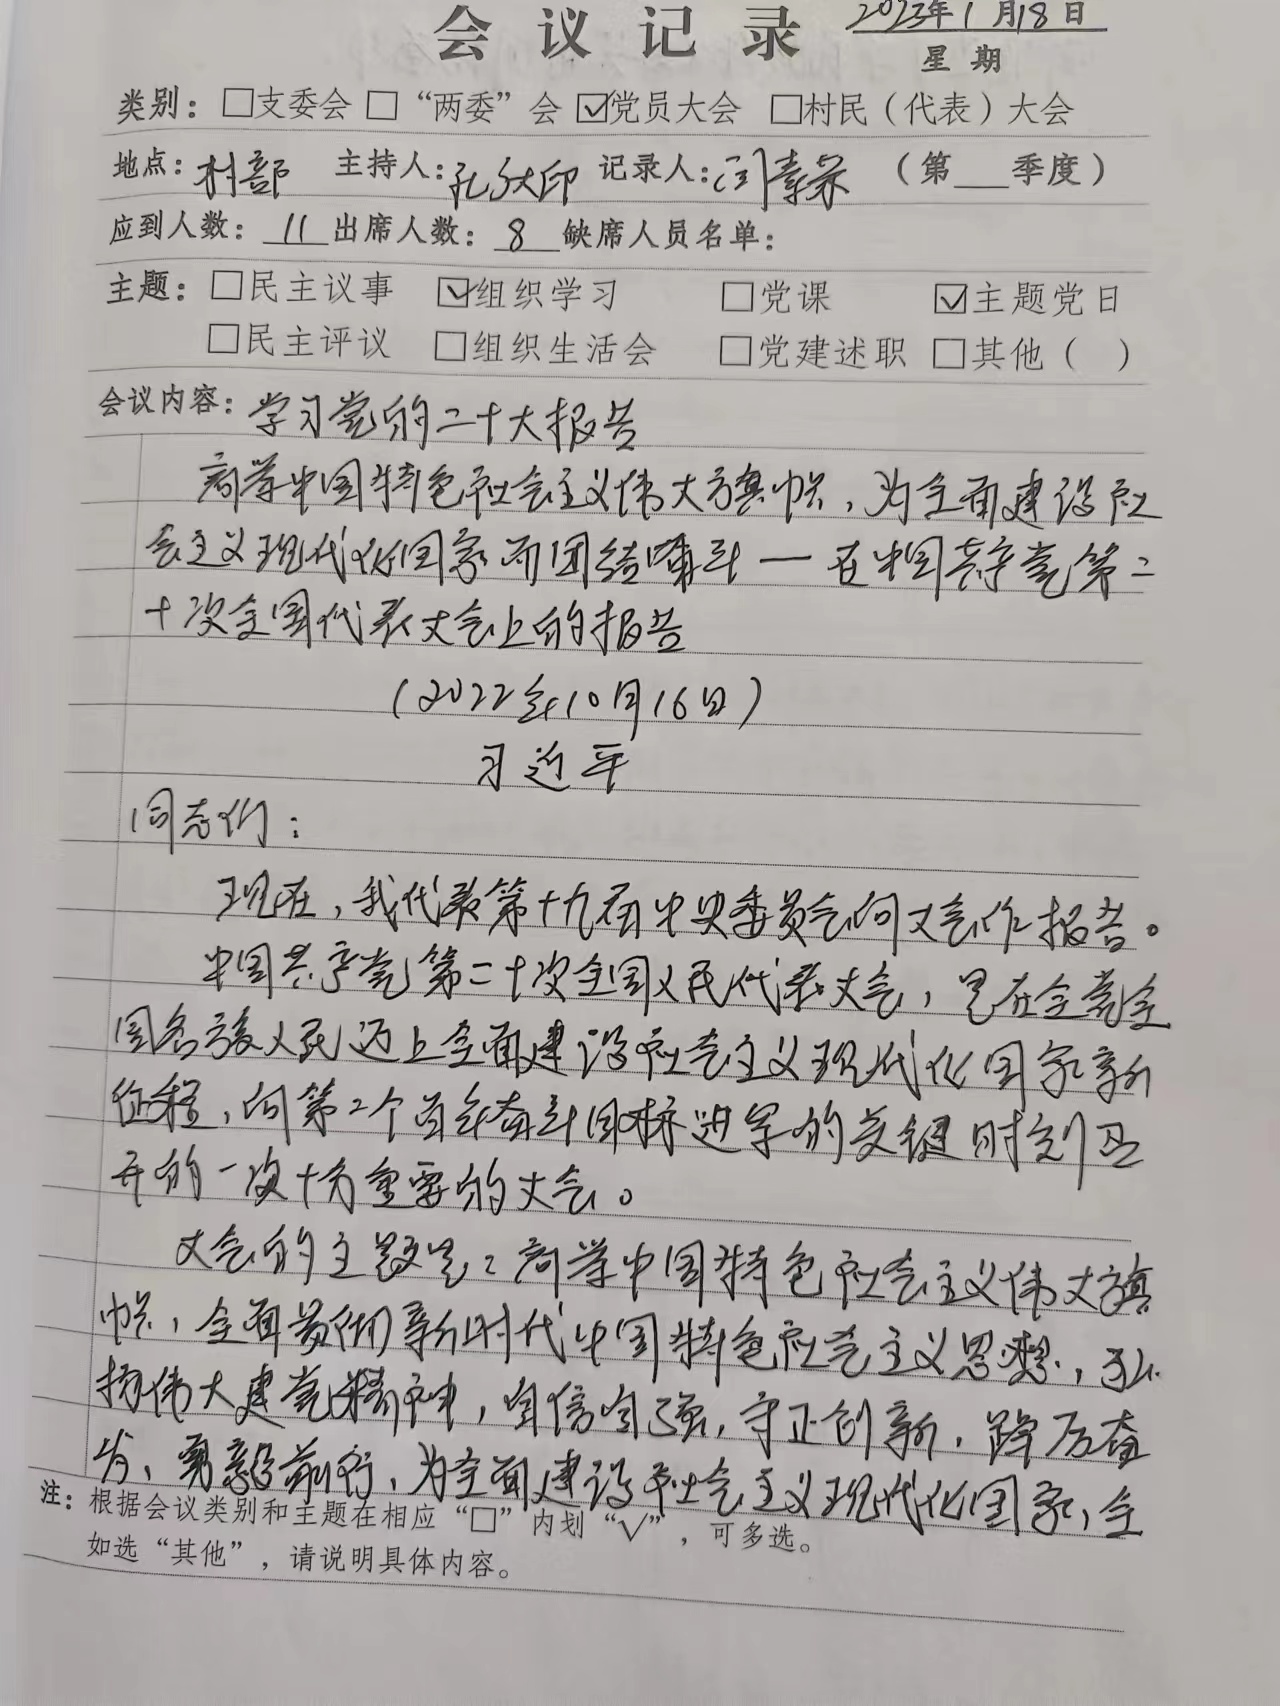 会议记录 2023年1月18日
星期
类别：□支委会 □“两委”会 ☑党员大会 □村民（代表）大会
地点：村部 主持人：孔 印 记录人：闫素荣 （第___季度）
应到人数：11 出席人数：8 缺席人员名单：
主题：□民主议事 ☑组织学习 □党课 ☑主题党日
□民主评议 □组织生活会 □党建述职 □其他（ ）
会议内容：学习党的二十大报告
高举中国特色社会主义伟大旗帜，为全面建设社
会主义现代化国家而团结奋斗一在中国共产党第二
十次全国代表大会上的报告
（2022年10月16日）
习近平
同志们：
现在，我代表第十九届中央委员会向大会作报告。
中国共产党第二十次全国人民代表大会，是在全党全
国各族人民迈上全面建设社会主义现代化国家新
征程，向第二个百年奋斗目标进军的关键时刻召
开的一次十分重要的大会。
大会的主题是：高举中国特色社会主义伟大旗
帜，全面贯彻新时代中国特色社会主义思想，弘
扬伟大建党精神，自信自强，守正创新，踔厉奋
发，勇毅前行，为全面建设社会主义现代化国家，全
注：根据会议类别和主题在相应“□”内划“√”，可多选。
如选“其他”，请说明具体内容。